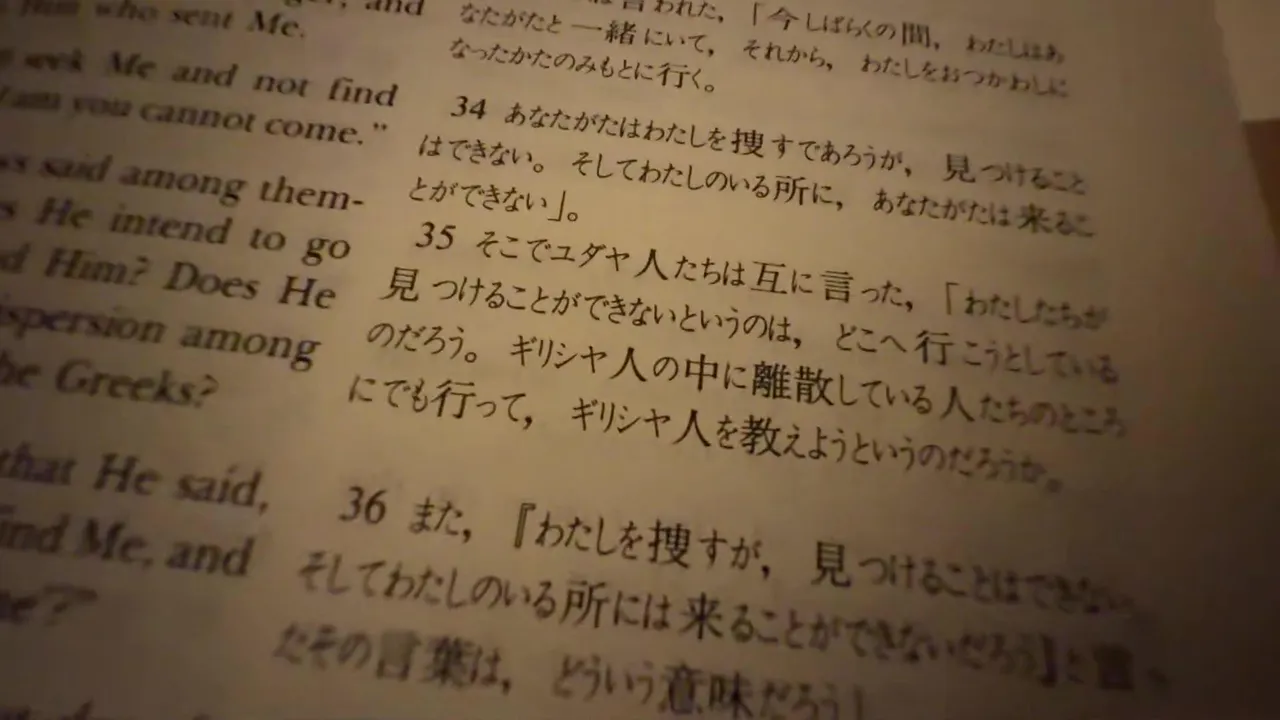 Him who sent Me.
seek Me and not find
I am you cannot come."
said among them-
He intend to go
Him? Does He
among
the Greeks?
that He said,
find Me, and
われた，「今しばらくの間， わたしはあ
なたがたと一緒にいて， それから， わたしをおつかわしに
なったかたのみもとに行く。
34 あなたがたはわたしを捜すであろうが， 見つけること
はできない。 そしてわたしのいる所に， あなたがたは来るこ
とができない」。
35 そこでユダヤ人たちは互に言った，「わたしたちが
見つけることができないというのは， どこへ行こうとしている
のだろう。 ギリシヤ人の中に離散している人たちのところ
にでも行って， ギリシヤ人を教えようというのだろうか。
36 また，『わたしを捜すが， 見つけることはできない
そしてわたしのいる所には来ることができないだろう』と言っ
たその言葉は， どういう意味だろう」